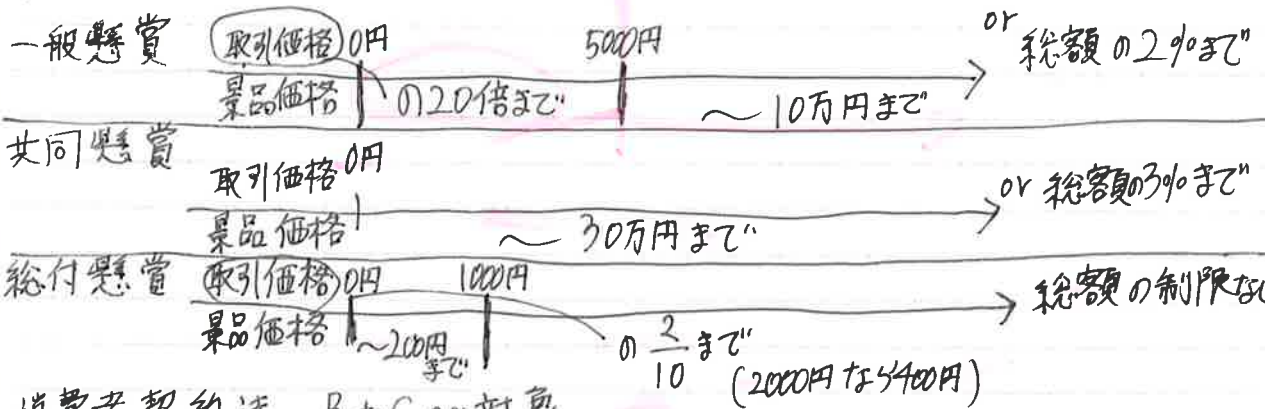 一般懸賞 取引価格 0円 5000円 or 総額の2%まで
景品価格 の20倍まで ～10万円まで
共同懸賞
取引価格 0円 or 総額の3%まで
景品価格 ～30万円まで
総付懸賞 取引価格 0円 1000円 総額の制限な
景品価格 ～200円まで の2/10まで
(2000円なら400円)
消費者契約法 BtoCのみ対象